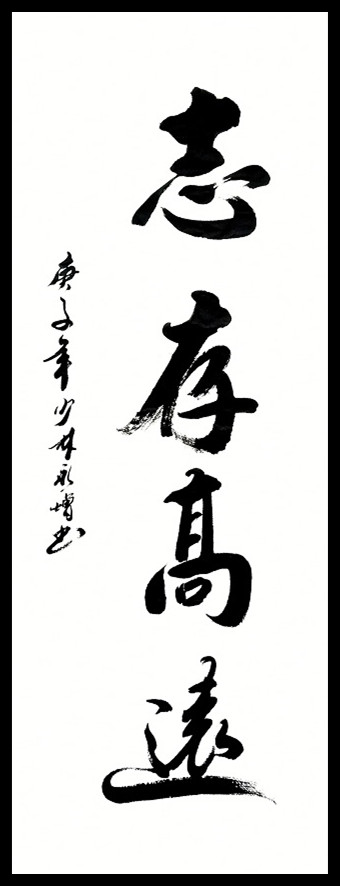 志存高遠
庚子年少林永增书